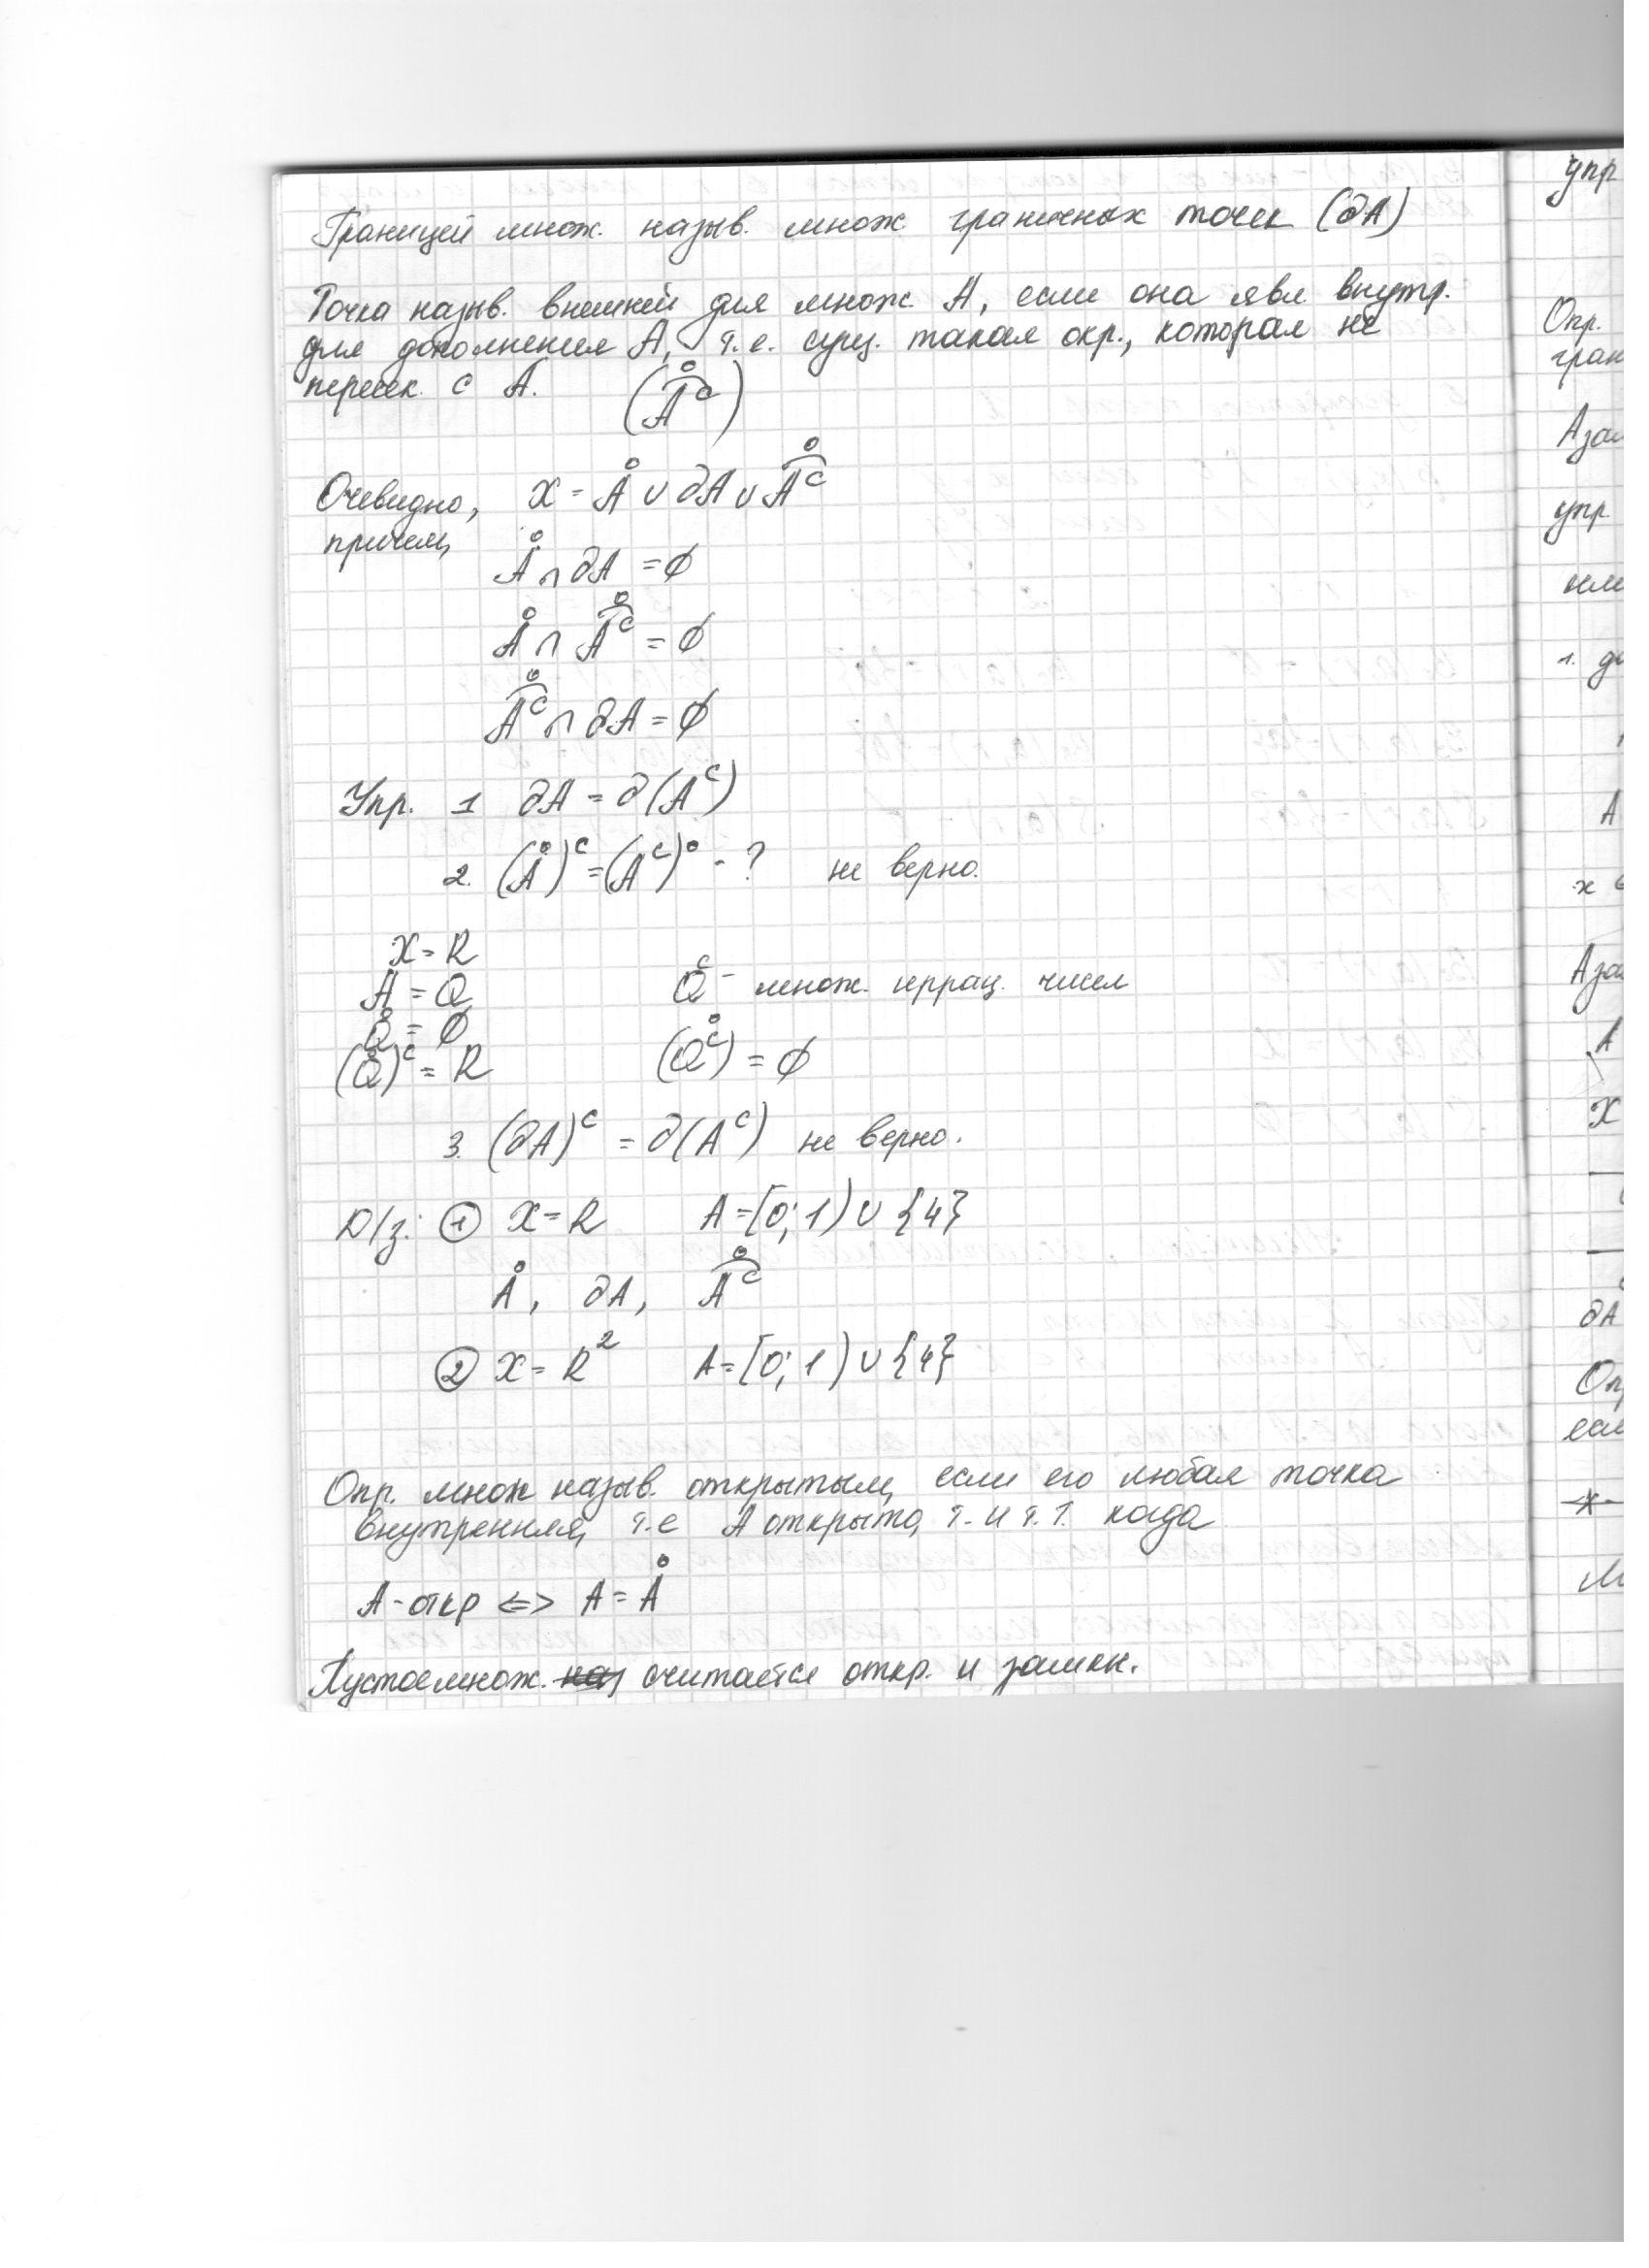 Границей множ. назыв. множ. граничных точек (∂A)
Точка назыв. внешней для множ. A, если она явл. внутр.
для дополнения A, т.е. сущ. такая окр., которая не
пересек. с A. (Å͡ᶜ)
Очевидно, X = Å ∪ ∂A ∪ Å͡ᶜ
причем,
Å ∩ ∂A = ∅
Å ∩ Å͡ᶜ = ∅
Å͡ᶜ ∩ ∂A = ∅
Упр. 1 ∂A = ∂(Aᶜ)
2. (Å)ᶜ = (Aᶜ)° - ? не верно.
X = R
A = Q Qᶜ - множ. иррац. чисел
Q̊ = ∅
(Q̊)ᶜ = R (Q̊ᶜ) = ∅
3. (∂A)ᶜ = ∂(Aᶜ) не верно.
Д/з: ① X = R A = [0; 1) ∪ {4}
Å, ∂A, Å͡ᶜ
② X = R² A = [0; 1) ∪ {4}
Опр. множ назыв. открытым, если его любая точка
внутренняя, т.е A открыто, т. и т. т. когда
A - откр <=> A = Å
Пустое множ. считается откр. и замкн.
упр
Опр.
гран
A зам
упр.
1.
A
x
A
X
∂A
Оп
если